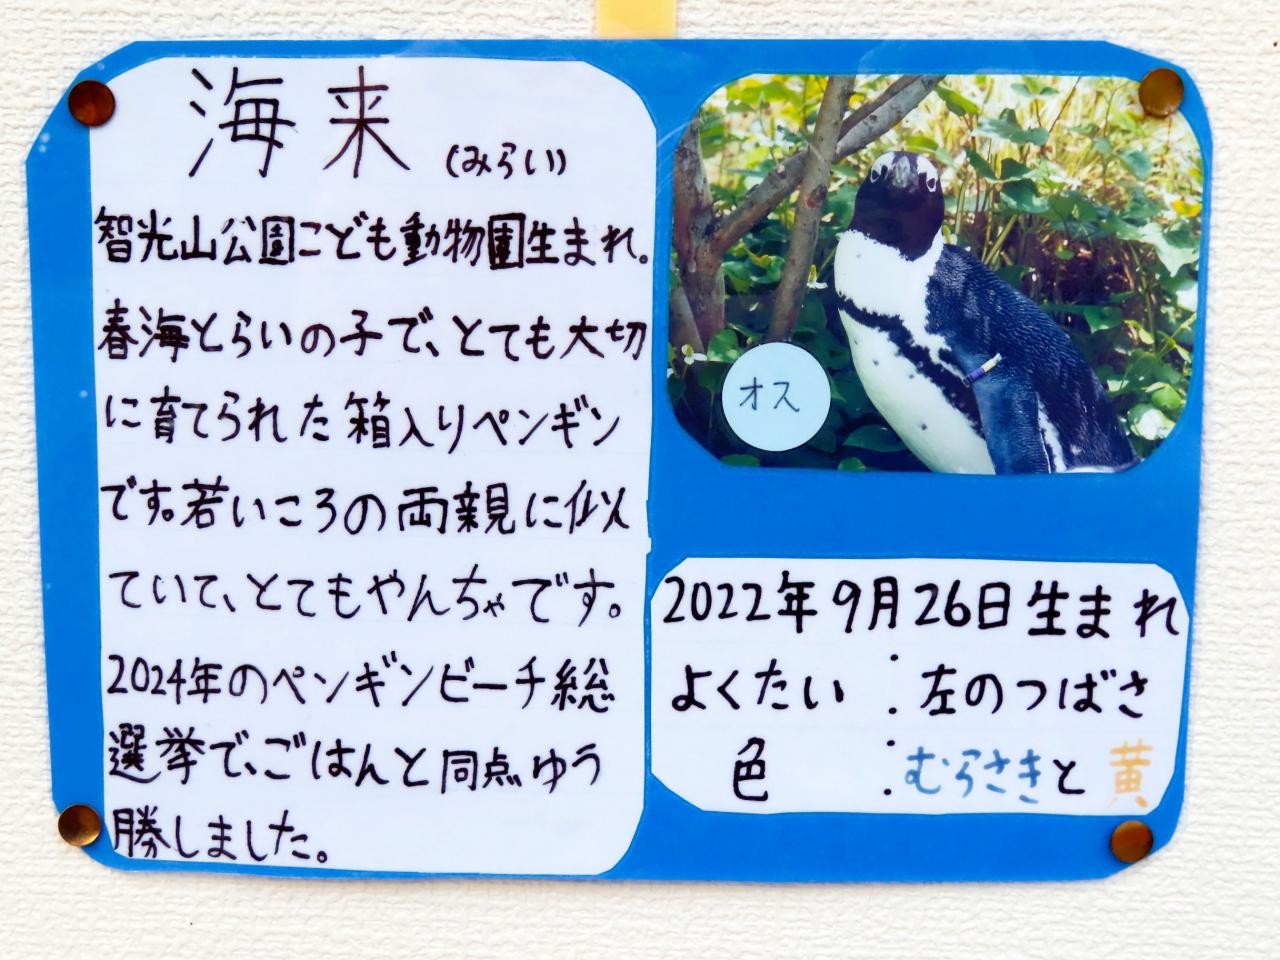 海来(みらい)
智光山公園こども動物園生まれ。
春海とらいの子で、とても大切
に育てられた箱入りペンギン
です。若いころの両親に似
ていて、とてもやんちゃです。
2024年のペンギンビーチ総
選挙で、ごはんと同点ゆう
勝しました。
オス
2022年9月26日生まれ
よくたい：左のつばさ
色：むらさきと黄